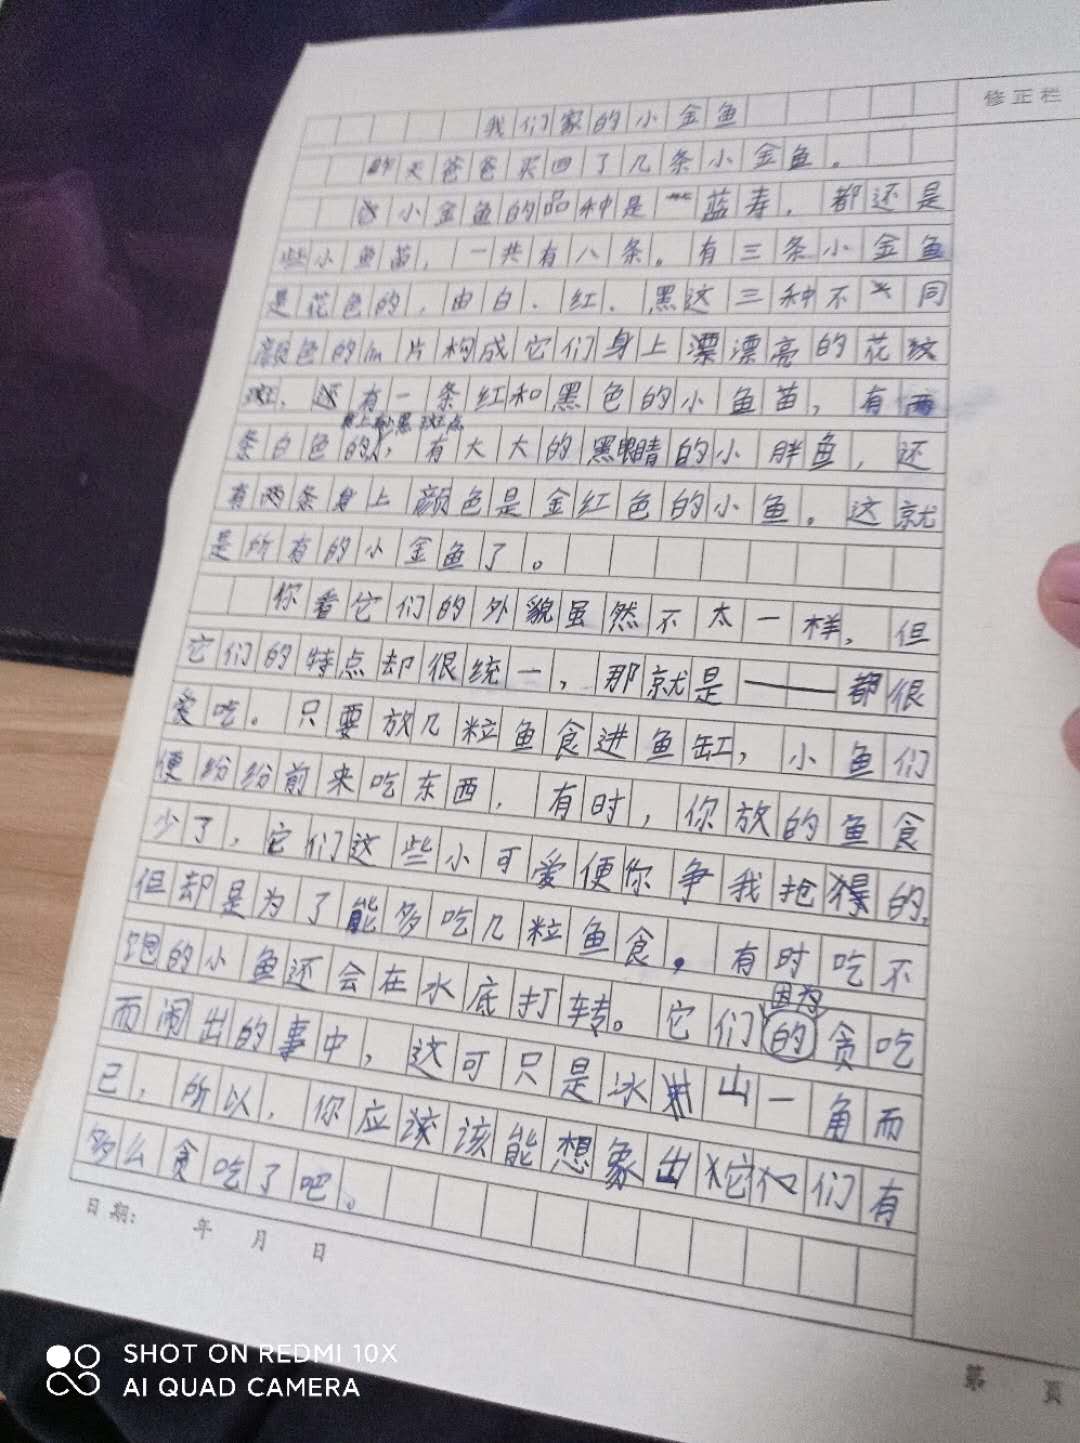 修正栏
我们家的小金鱼
昨天爸爸买回了几条小金鱼。
小金鱼的品种是一蓝寿，都还是
些小鱼苗，一共有八条。有三条小金鱼
是花色的，由白、红、黑这三种不同
颜色的片构成它们身上漂漂亮的花纹
斑、还有一条红和黑色的小鱼苗，有两
身上有小黑斑点
条白色的，有大大的黑眼睛的小胖鱼，还
有两条身上颜色是金红色的小鱼。这就
是所有的小金鱼了。
你看它们的外貌虽然不太一样，但
它们的特点却很统一，那就是——都很
爱吃。只要放几粒鱼食进鱼缸，小鱼们
便纷纷前来吃东西，有时，你放的鱼食
少了，它们这些小可爱便你争我抢的，
但却是为了能多吃几粒鱼食。有时吃不
饱的小鱼还会在水底打转。它们的贪吃
因为
而闹出的事中，这可只是冰山一角而
已，所以，你应该该能想象出它们有
多么贪吃了吧。
日期： 年 月 日
第 页
SHOT ON REDMI 10X
AI QUAD CAMERA